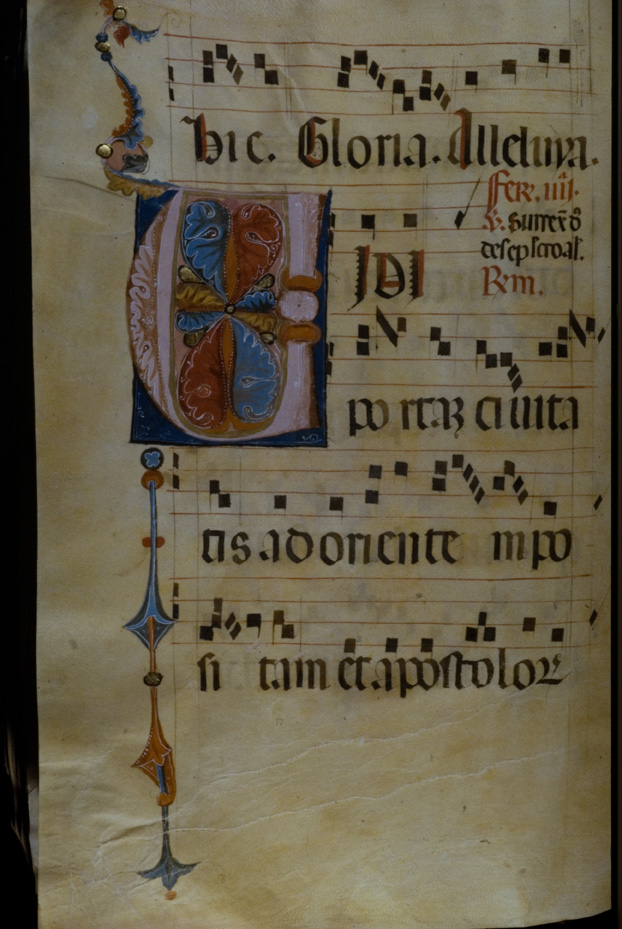 hic. Gloria. Alleluya.
Fer. iiij.
℣. Surrex̄ d̄
desep̄lcro al'.
Rem.
VIDI
po rtaꝫ ciuita
tis ad oriente m po
si tam et apostoloꝝ